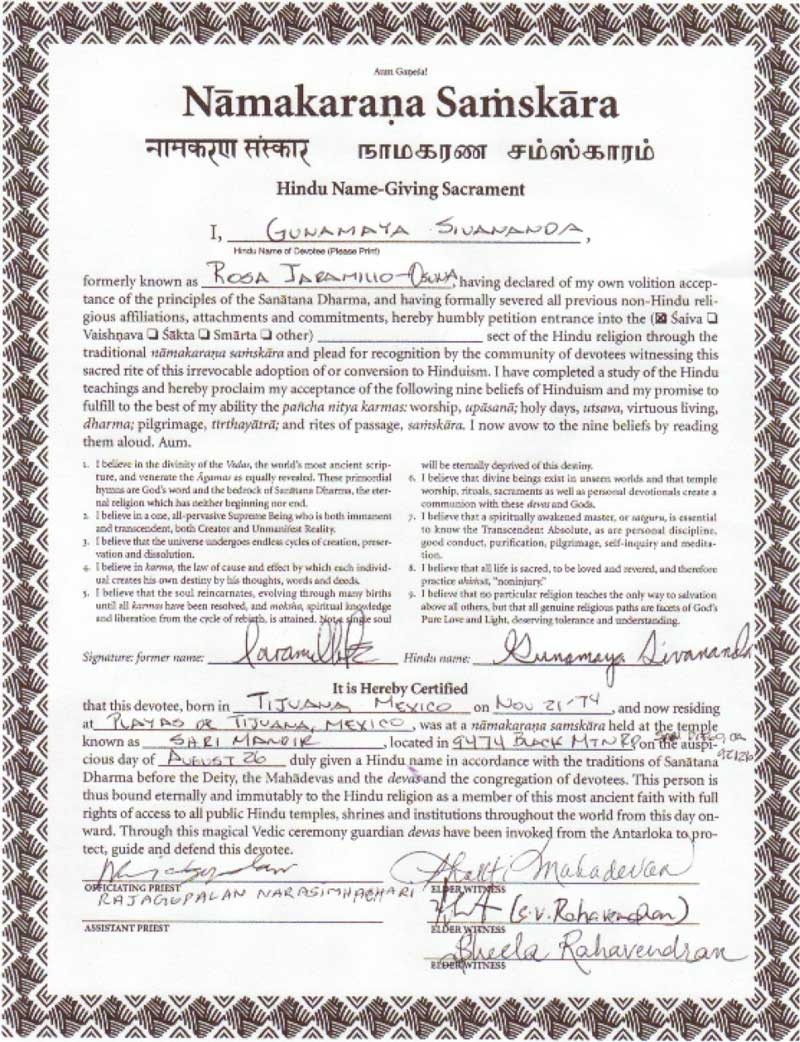 Aum Gaṇeśa!
Nāmakaraṇa Saṁskāra
नामकरण संस्कार் நாமகரண சம்ஸ்காரம்
Hindu Name-Giving Sacrament
I, GUNAMAYA SIVANANDA,
Hindu Name of Devotee (Please Print)
formerly known as ROSA JARAMILLO-OSUNA, having declared of my own volition accep-
tance of the principles of the Sanātana Dharma, and having formally severed all previous non-Hindu reli-
gious affiliations, attachments and commitments, hereby humbly petition entrance into the (☒ Śaiva ❏
Vaishṇava ❏ Śākta ❏ Smārta ❏ other) sect of the Hindu religion through the
traditional nāmakaraṇa saṁskāra and plead for recognition by the community of devotees witnessing this
sacred rite of this irrevocable adoption of or conversion to Hinduism. I have completed a study of the Hindu
teachings and hereby proclaim my acceptance of the following nine beliefs of Hinduism and my promise to
fulfill to the best of my ability the pañcha nitya karmas: worship, upāsanā; holy days, utsava, virtuous living,
dharma; pilgrimage, tīrthayātrā; and rites of passage, saṁskāra. I now avow to the nine beliefs by reading
them aloud. Aum.
1. I believe in the divinity of the Vedas, the world's most ancient scrip-
ture, and venerate the Āgamas as equally revealed. These primordial
hymns are God's word and the bedrock of Sanātana Dharma, the eter-
nal religion which has neither beginning nor end.
2. I believe in a one, all-pervasive Supreme Being who is both immanent
and transcendent, both Creator and Unmanifest Reality.
3. I believe that the universe undergoes endless cycles of creation, preser-
vation and dissolution.
4. I believe in karma, the law of cause and effect by which each individ-
ual creates his own destiny by his thoughts, words and deeds.
5. I believe that the soul reincarnates, evolving through many births
until all karmas have been resolved, and moksha, spiritual knowledge
and liberation from the cycle of rebirth, is attained. Not a single soul
will be eternally deprived of this destiny.
6. I believe that divine beings exist in unseen worlds and that temple
worship, rituals, sacraments as well as personal devotionals create a
communion with these devas and Gods.
7. I believe that a spiritually awakened master, or satguru, is essential
to know the Transcendent Absolute, as are personal discipline,
good conduct, purification, pilgrimage, self-inquiry and medita-
tion.
8. I believe that all life is sacred, to be loved and revered, and therefore
practice ahiṁsā, "noninjury."
9. I believe that no particular religion teaches the only way to salvation
above all others, but that all genuine religious paths are facets of God's
Pure Love and Light, deserving tolerance and understanding.
Signature: former name: Hindu name: Gunamaya Sivananda
It is Hereby Certified
that this devotee, born in TIJUANA MEXICO on NOV 21-74, and now residing
at PLAYAS DE TIJUANA, MEXICO, was at a nāmakaraṇa saṁskāra held at the temple
known as SHRI MANDIR, located in 9474 BLACK MTN RD, SAN DIEGO, CA 92126 on the auspi-
cious day of AUGUST 26 duly given a Hindu name in accordance with the traditions of Sanātana
Dharma before the Deity, the Mahādevas and the devas and the congregation of devotees. This person is
thus bound eternally and immutably to the Hindu religion as a member of this most ancient faith with full
rights of access to all public Hindu temples, shrines and institutions throughout the world from this day on-
ward. Through this magical Vedic ceremony guardian devas have been invoked from the Antarloka to pro-
tect, guide and defend this devotee.
Bhakti Mahadevan
OFFICIATING PRIEST ELDER WITNESS
RAJAGOPALAN NARASIMHACHARI
(S.V. Rahavendran)
ASSISTANT PRIEST ELDER WITNESS
Sheela Rahavendran
ELDER WITNESS